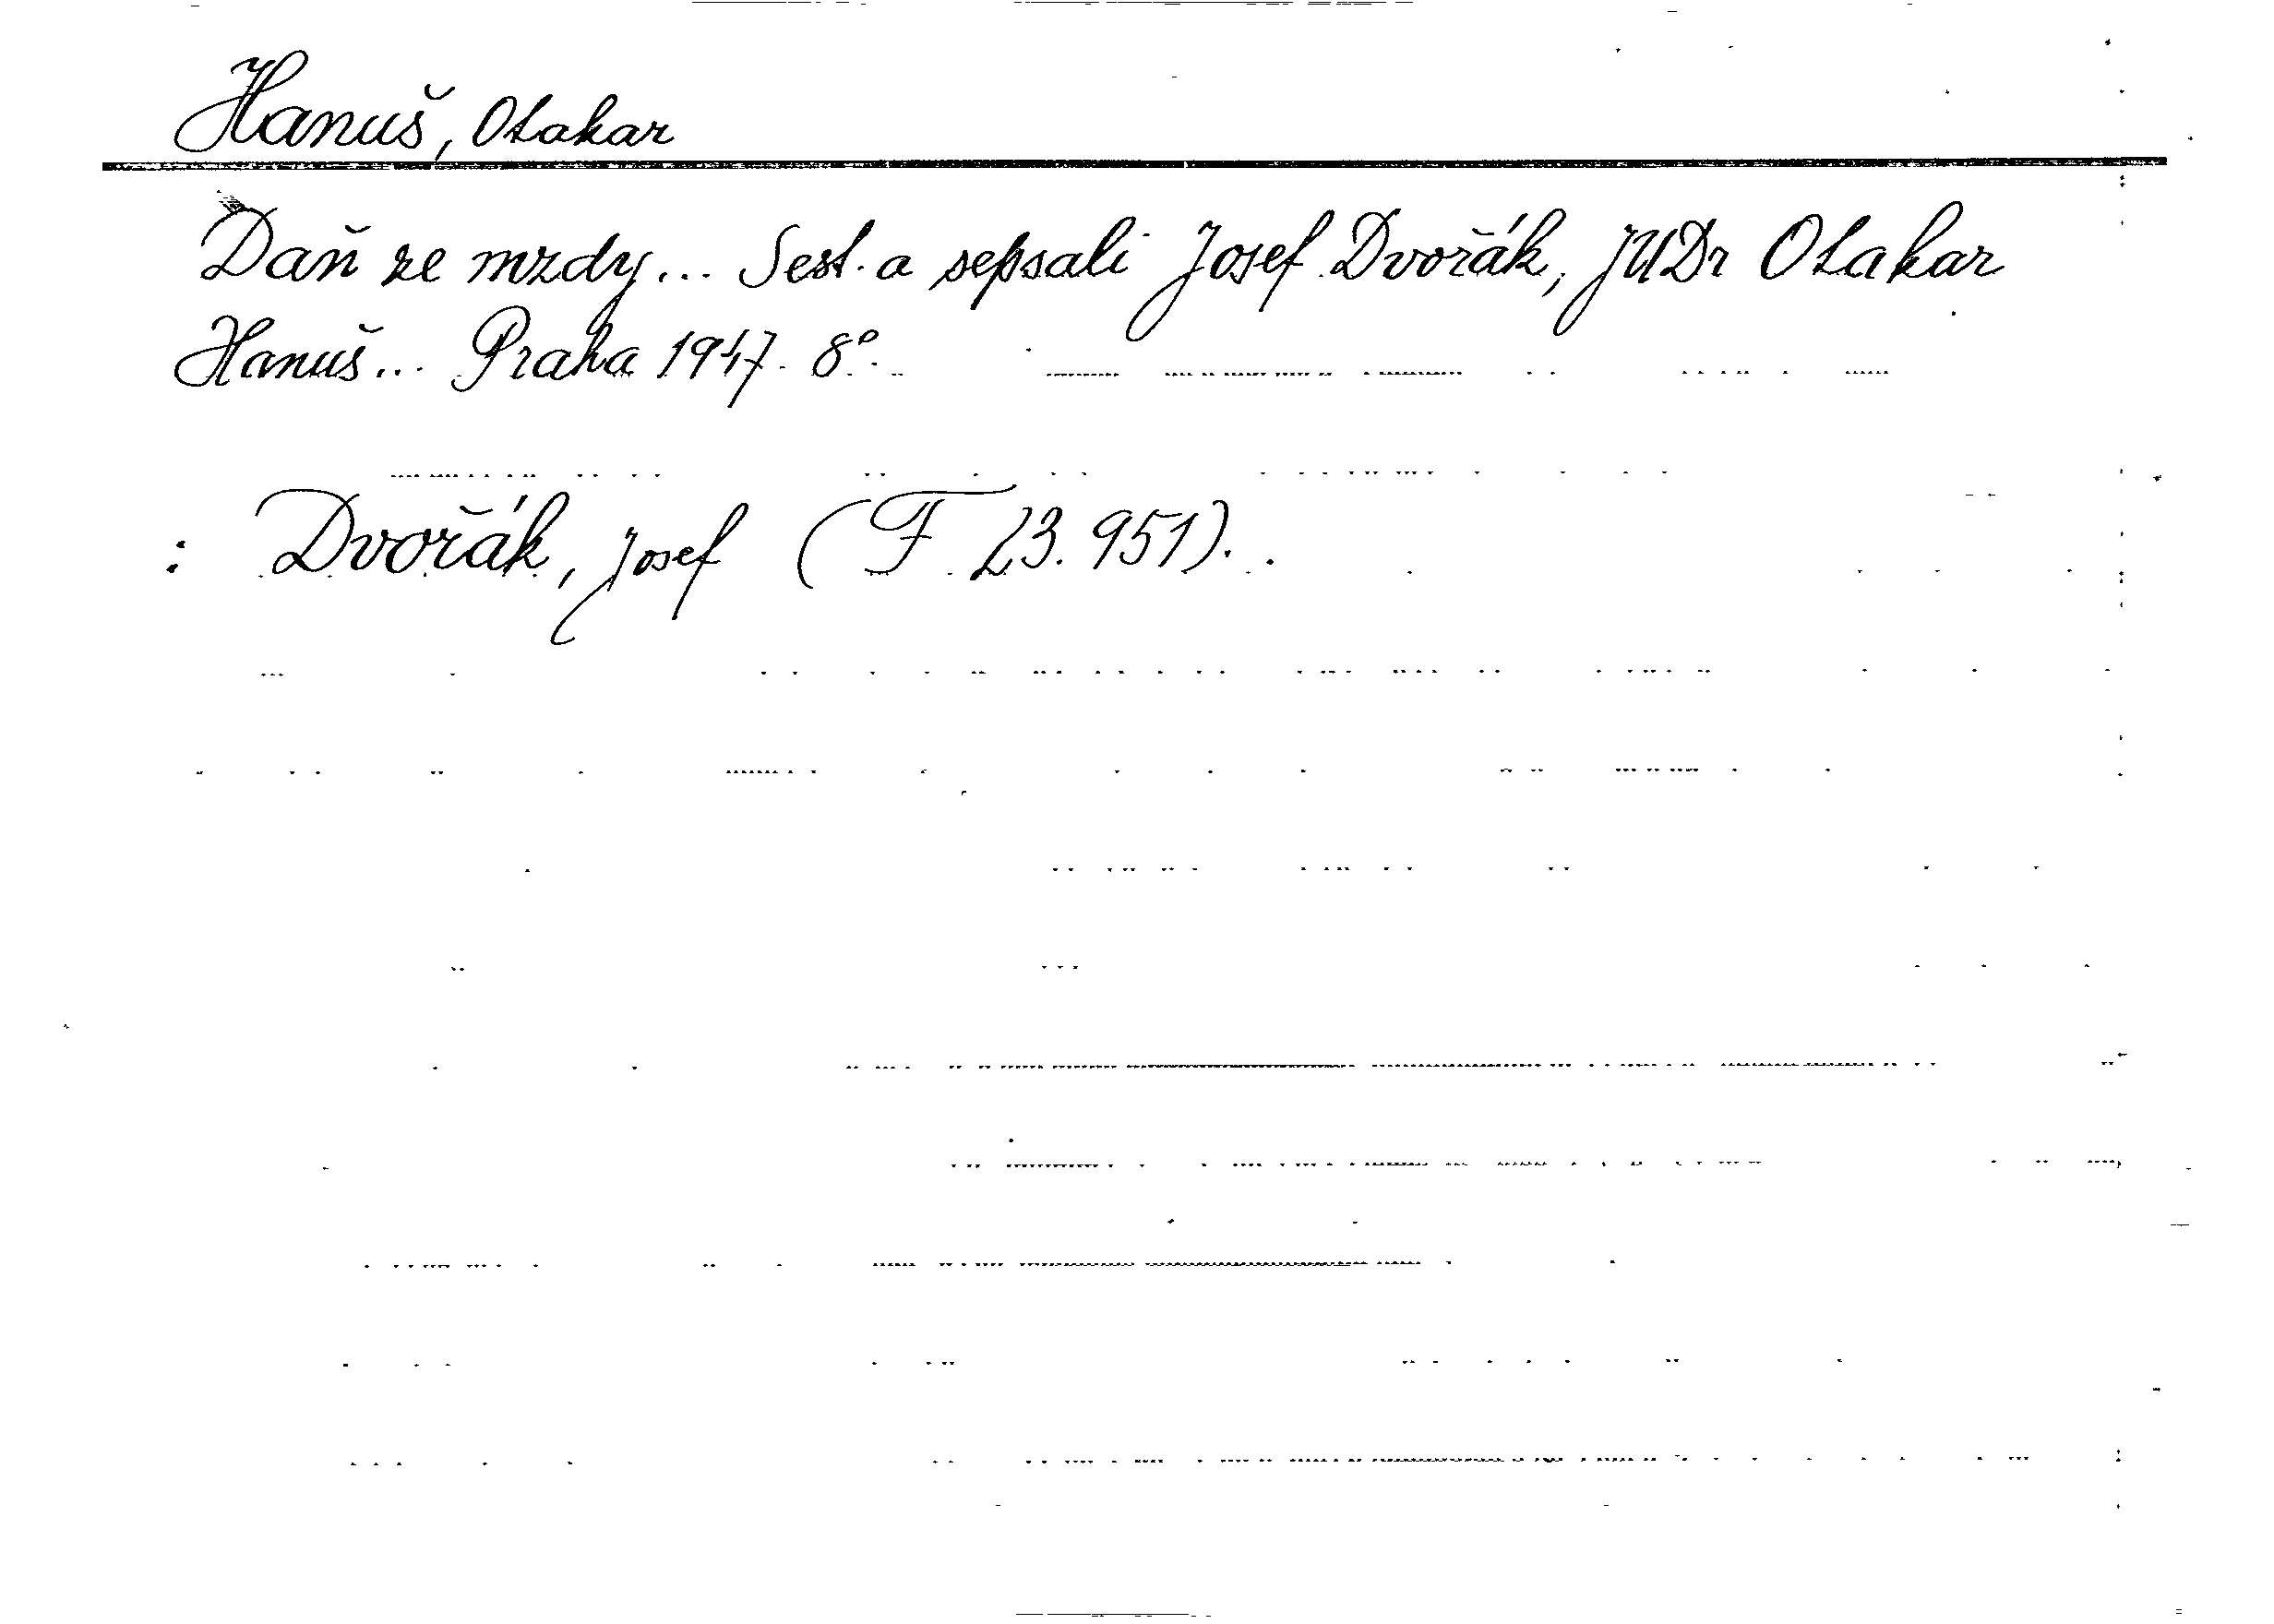 Hanuš, Otakar
Daň ze mzdy... Sest. a sepsali Josef Dvořák, JUDr Otakar
Hanuš... Praha 1947. 8°.
: Dvořák, Josef (F 23.951).